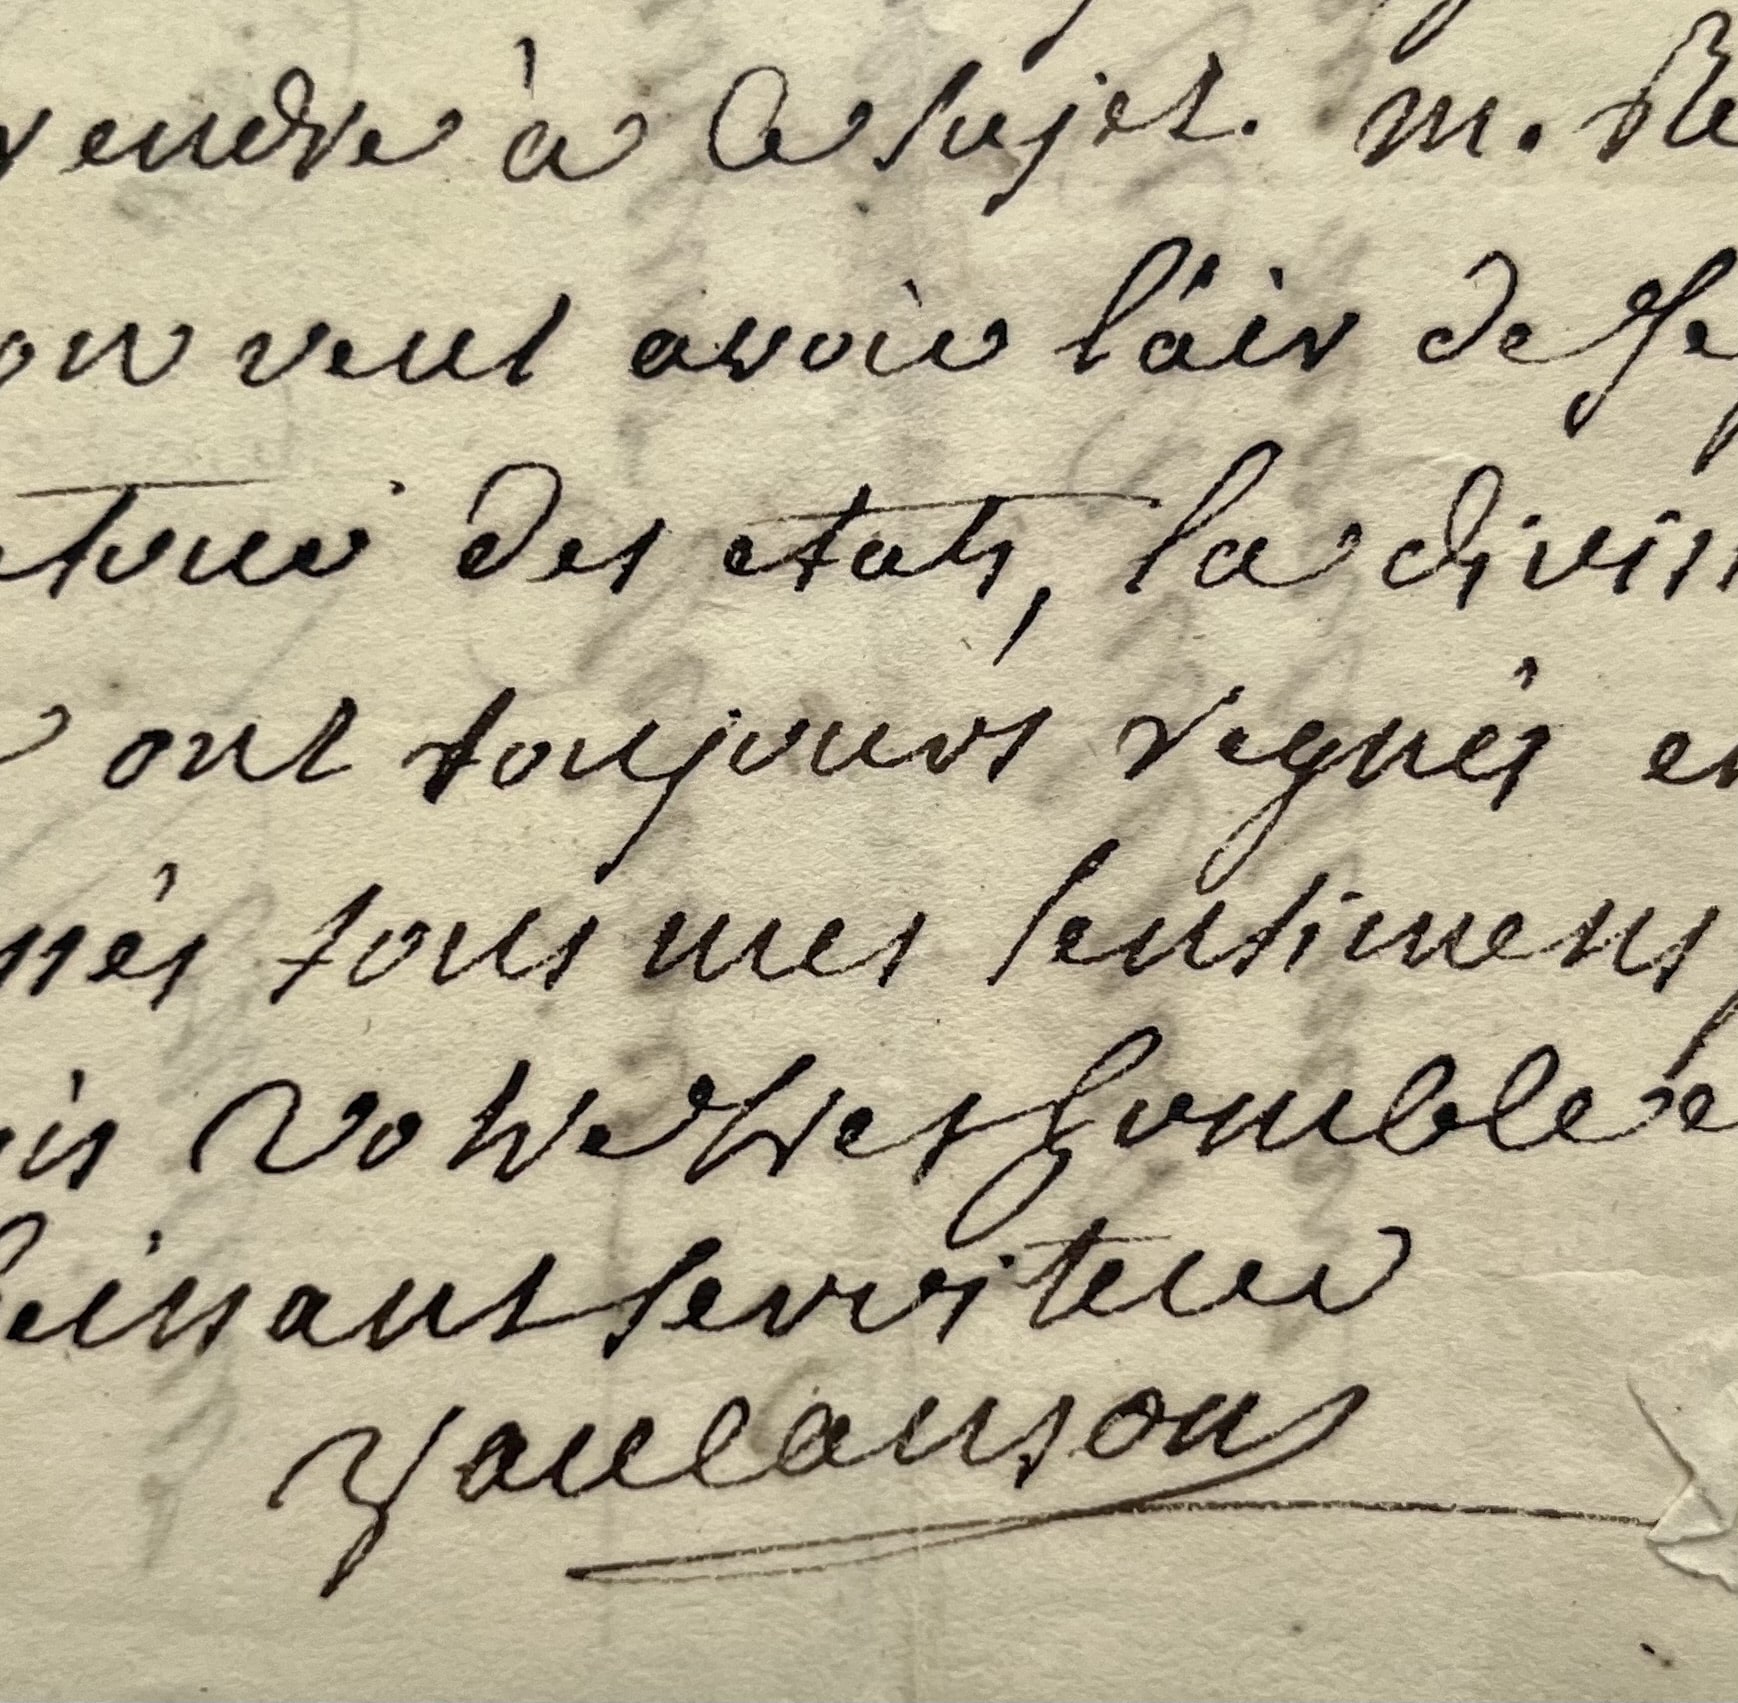 rendre à ce sujet. m. Re
on veut avoir l'air de se
des etats, la divis
ont toujours regnés en
nés tous mes sentimens
is votre tres homble e
beissant serviteur
Vaucanson